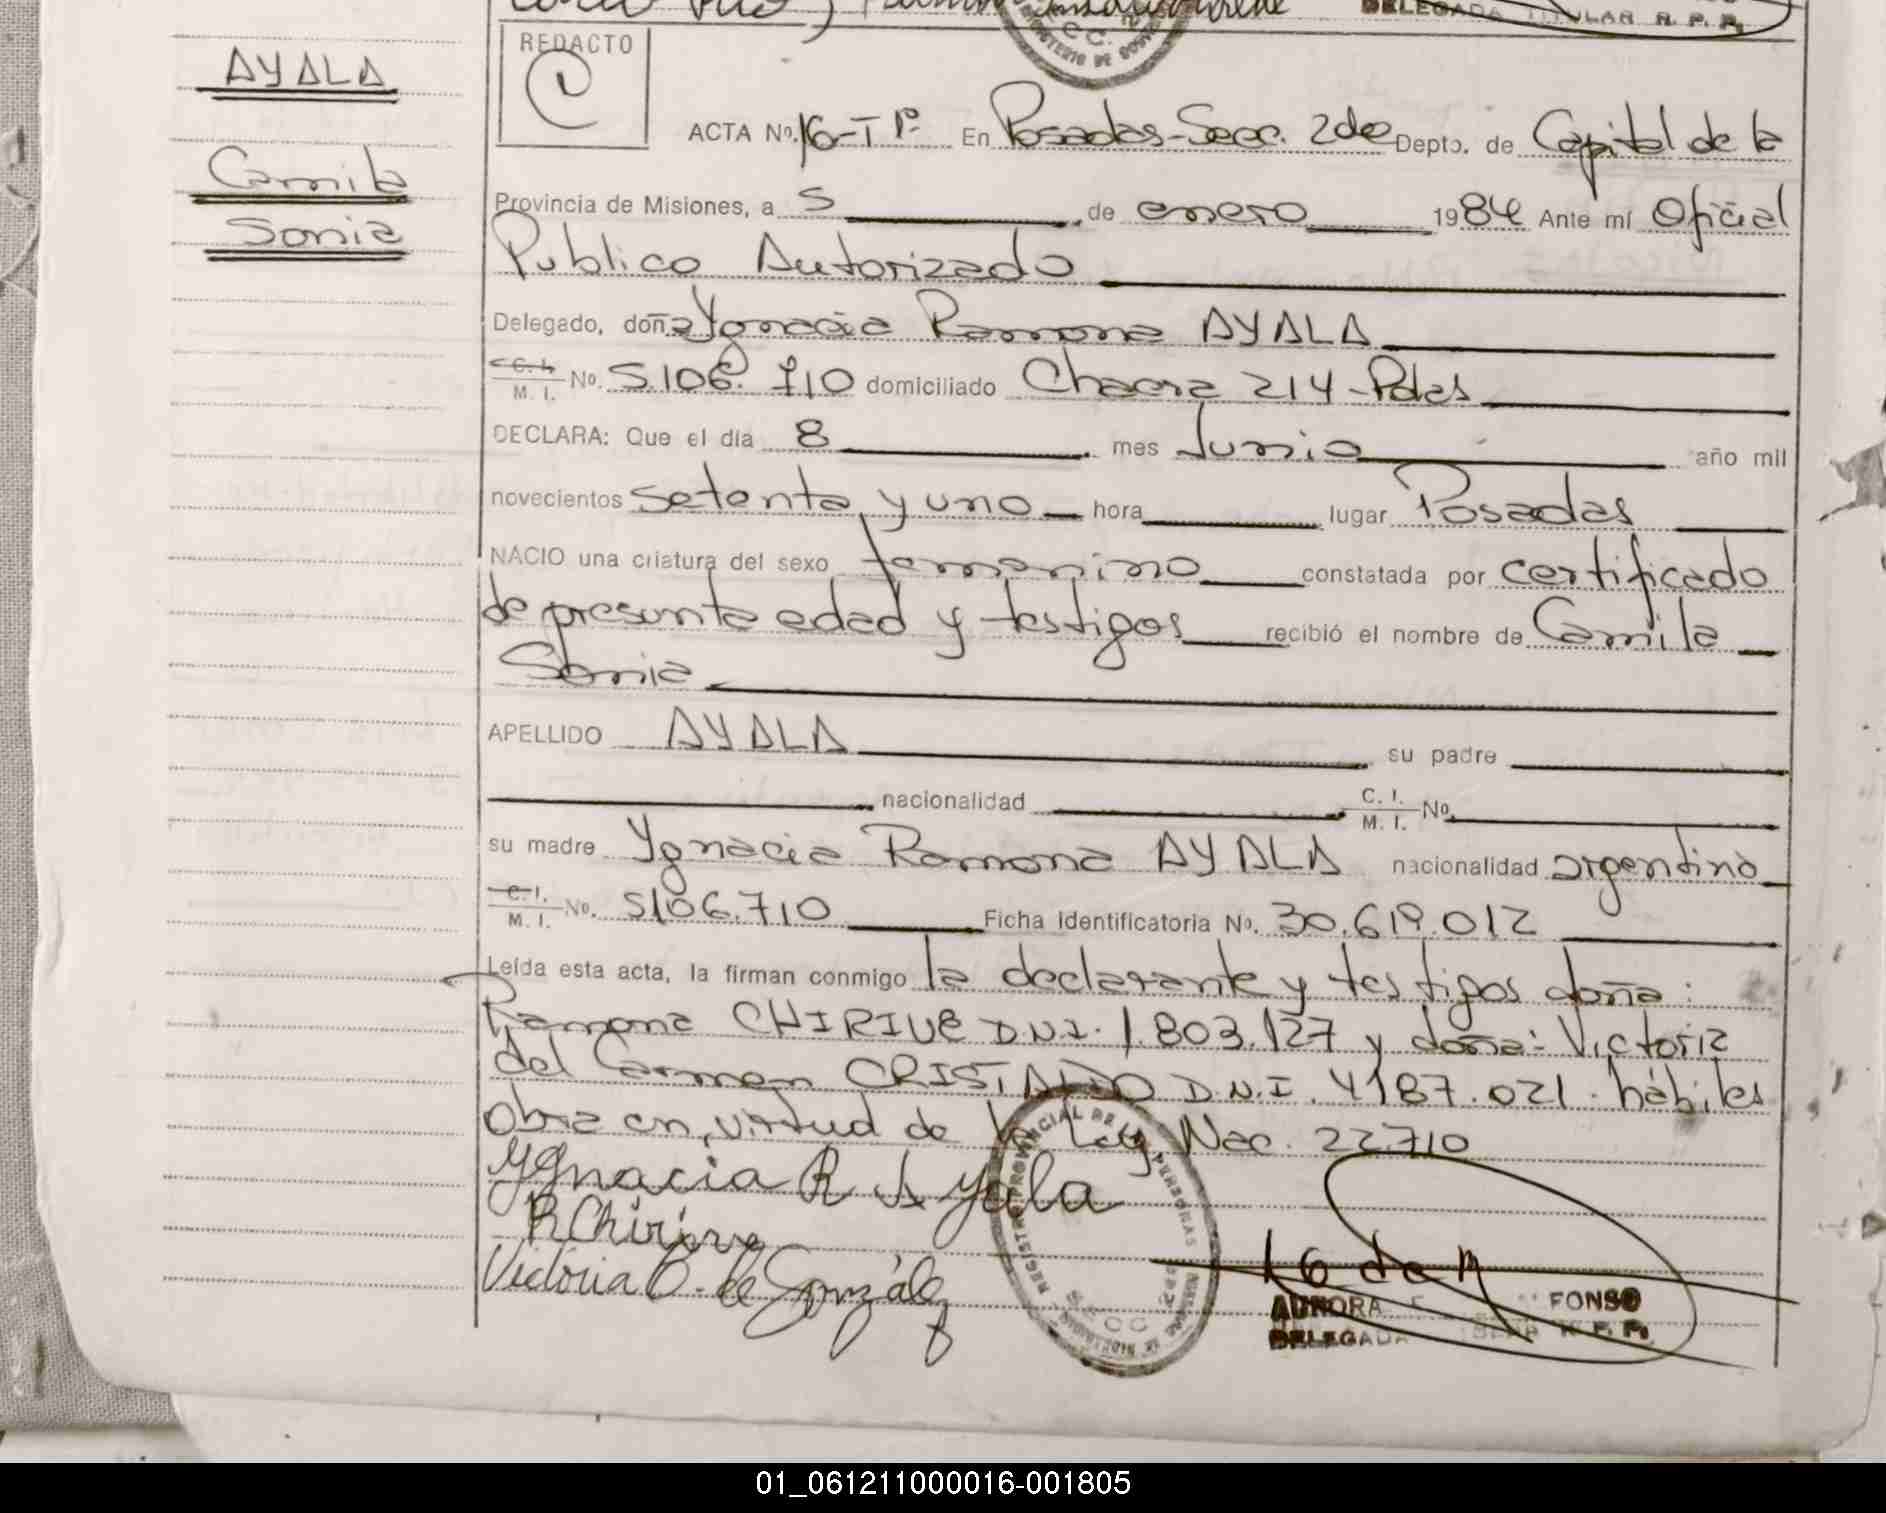 DELEGADA TITULAR R. P. P.
REDACTO
AYALA
Camila
Sonia
ACTA Nº. 16-Tº 1º En Posadas-Secc. 2da Depto. de Capital de la
Provincia de Misiones, a 5 de enero 1984 Ante mí Oficial
Publico Autorizado
Delegado, doña Ygnacia Ramona AYALA
C. I. M. I. Nº. 5.106.710 domiciliado Chacra 214-Pdas
DECLARA: Que el día 8 mes Junio año mil
novecientos setenta y uno hora lugar Posadas
NACIO una criatura del sexo femenino constatada por certificado
de presunta edad y testigos recibió el nombre de Camila
Sonia
APELLIDO AYALA su padre
nacionalidad C. I. M. I. Nº.
su madre Ygnacia Ramona AYALA nacionalidad argentina
C. I. M. I. Nº. 5106.710 Ficha Identificatoria Nº. 30.619.012
Leída esta acta, la firman conmigo la declarante y testigos doña:
Ramona CHIRIVE D.N.I. 1.803.127 y doña: Victoria
del Carmen CRISTALDO D.N.I. 4187.021. hábiles
obra en virtud de la Ley Nac. 22710
YGnacia R Ayala
R Chirive
Victoria C. de González
REGISTRO PROVINCIAL DE LAS PERSONAS
SECC 2
AURORA FONSO
DELEGADA R. P. P.
01_061211000016-001805